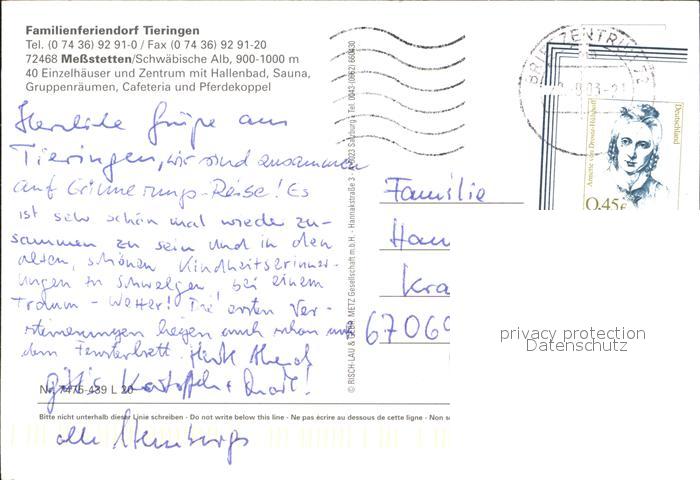 Familienferiendorf Tieringen
Tel. (0 74 36) 92 91-0 / Fax (0 74 36) 92 91-20
72468 Meßstetten/Schwäbische Alb, 900-1000 m
40 Einzelhäuser und Zentrum mit Hallenbad, Sauna,
Gruppenräumen, Cafeteria und Pferdekoppel
Herzliche Grüße aus
Tieringen, wir sind zusammen
auf Erinnerungs-Reise! Es
ist sehr schön mal wieder zu-
sammen zu sein und in den
alten, schönen Kindheitserinner-
ungen zu schwelgen, bei einem
Traum-Wetter! Die ersten Ver-
steinerungen liegen auch schon auf
dem Fensterbrett. Heute Abend
gibt's Kartoffeln + Quark!
Nr. 7475-439 L 20
Bitte nicht unterhalb dieser Linie schreiben - Do not write below this line - Ne pas écrire au dessous de cette ligne - Non s
alle
© RISCH-LAU & GEBR. METZ Gesellschaft m.b.H. - Hannakstraße 3 - 5023 Salzburg - Tel. 0043-(0662)
BRIEFZENTRUM
Annette von Droste-Hülshoff
Deutschland
0,45€
Familie
Han
Kra
6706
privacy protection
Datenschutz